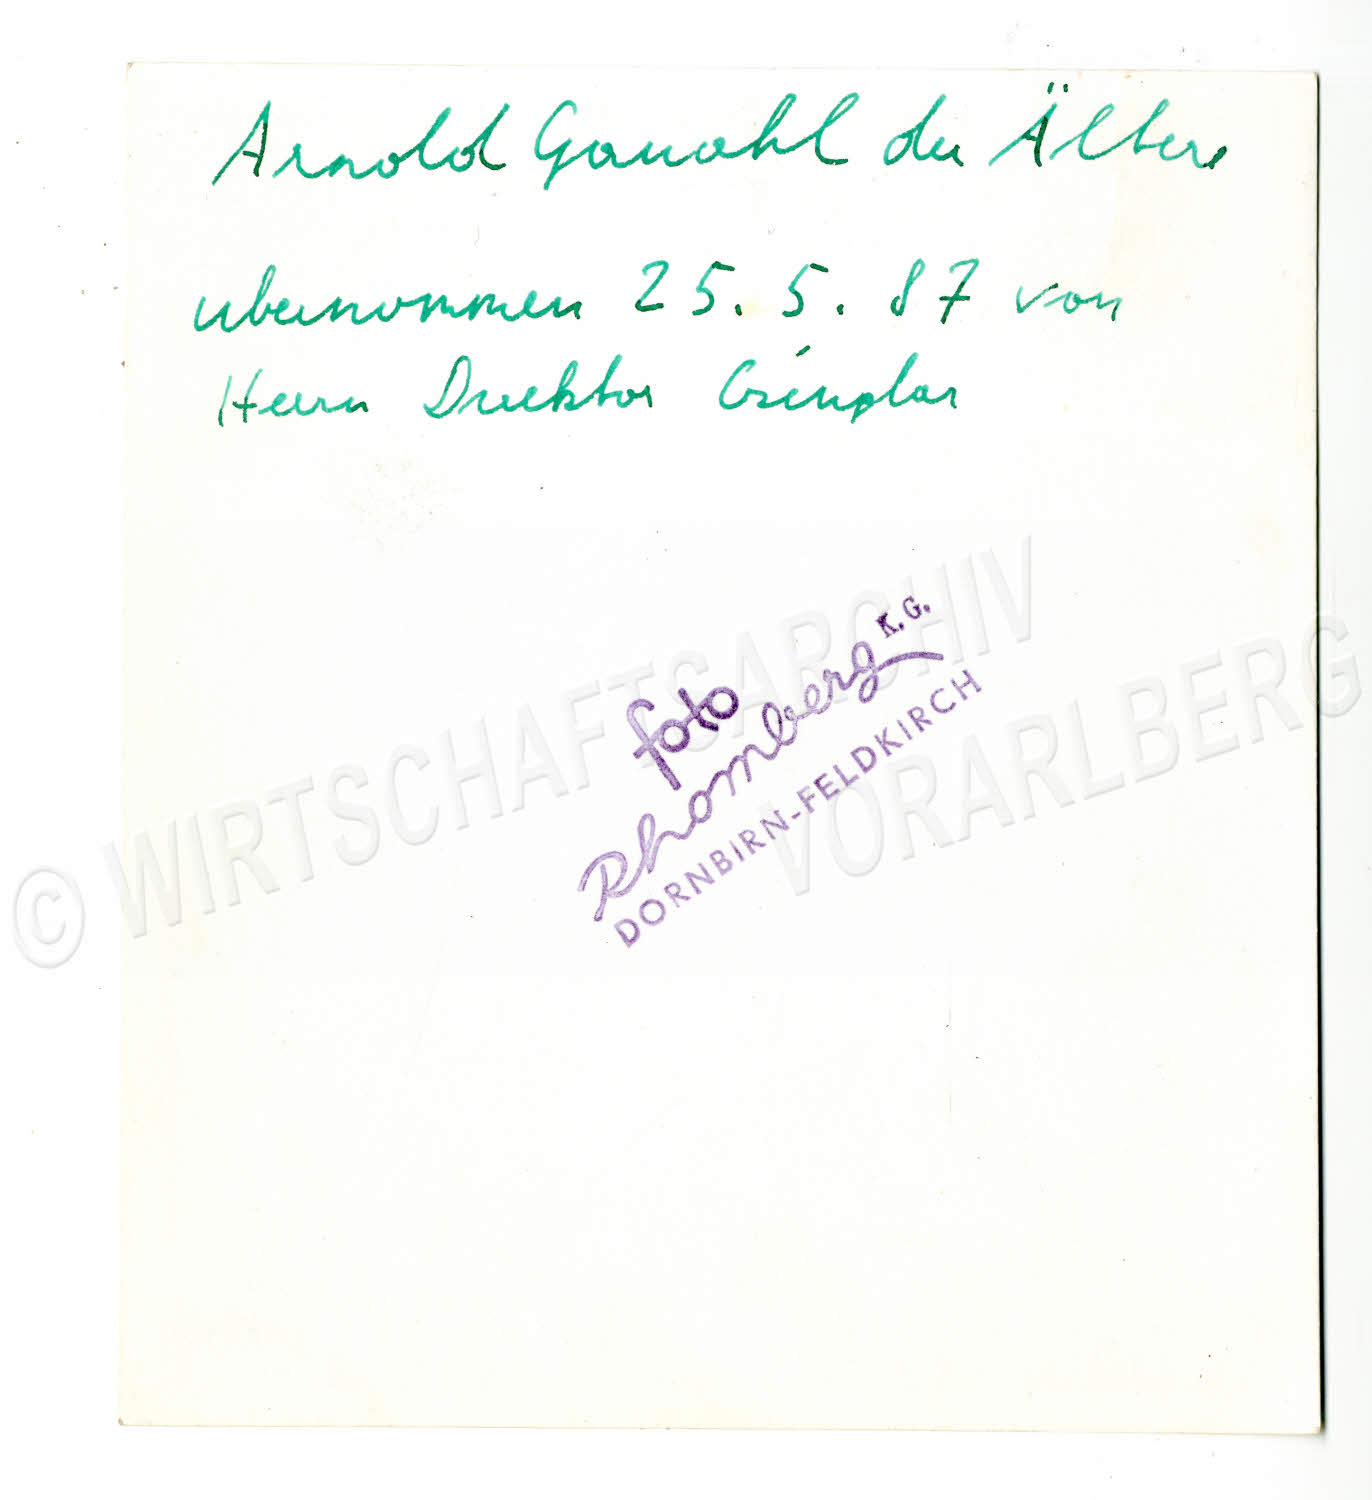 Arnold Ganahl der Ältere
übernommen 25.5.87 von
Herrn Direktor
foto
Rhomberg K.G.
DORNBIRN-FELDKIRCH
© WIRTSCHAFTSARCHIV
VORARLBERG